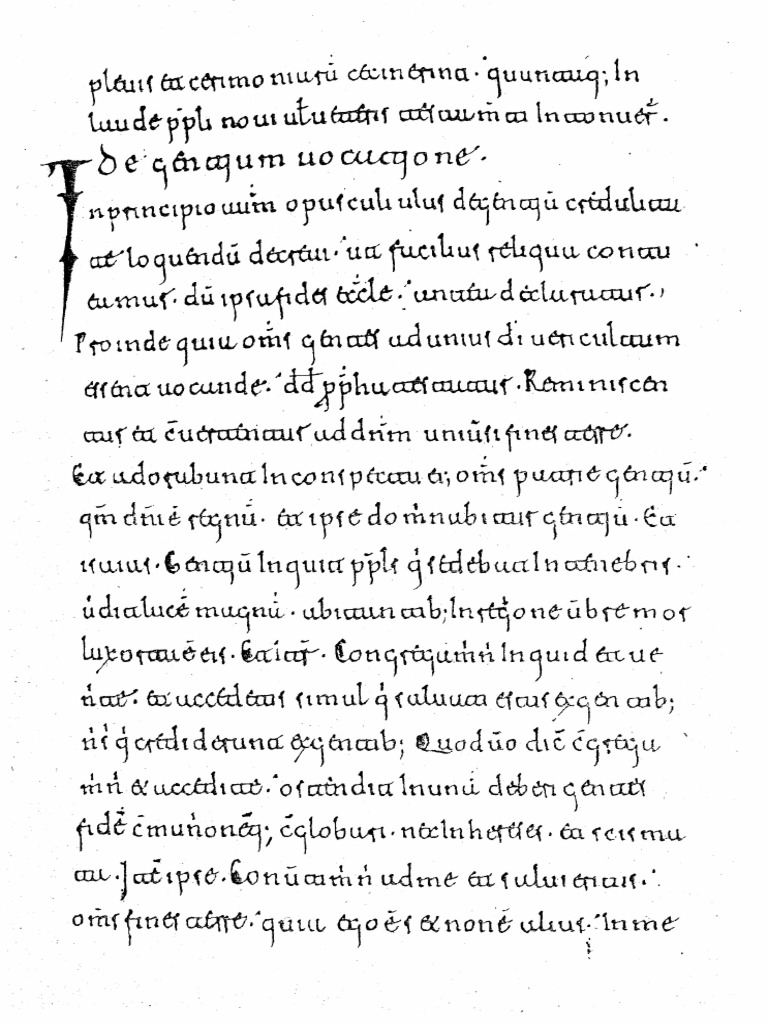 et cerimoniarū In
laude pp̄li noui ueritatis
de gentium uocatione.
In principio uūm opusculi uius de gentiū credulita
te loquendū decreui· ut facilius reliqua cona
emus· dū ipsa fides eccle· declaratur·
Proinde quia om̄s gentes ad unius di ueri cultum
essent uocande· dd pp̄hetis Reminiscen
tur et cōuertentur ad dnm uniuersi fines terre·
Et adorabunt In conspectu ei; om̄s patrie gentiū·
qm̄ dn̄i ē regnū· et ipse domnabitur gentiū· Et
isaias· Gentiū Inquit pp̄ls q̄ sedebat In tenebris·
ūdit lucē magnū· abitantib; In regione ūbre mor
lux orta ē eis· Et itȓ· Congregam̄n Inquid et ue
n̄te· et accedite simul q̄ saluati estis ex gentib;
n̄s q̄ crediderunt ex gentib; Quod ū̄o dic̄ c̄grega
m̄n & accedite· ostendit In unū deberi gentes
fidē c̄mun̄oneq; c̄globari· nec In hereses· et scisma
ta· Itē ipse· Conūtim̄n ad me et salui eritis·
om̄s fines terre· quia ego dēs & non ē alius· In me